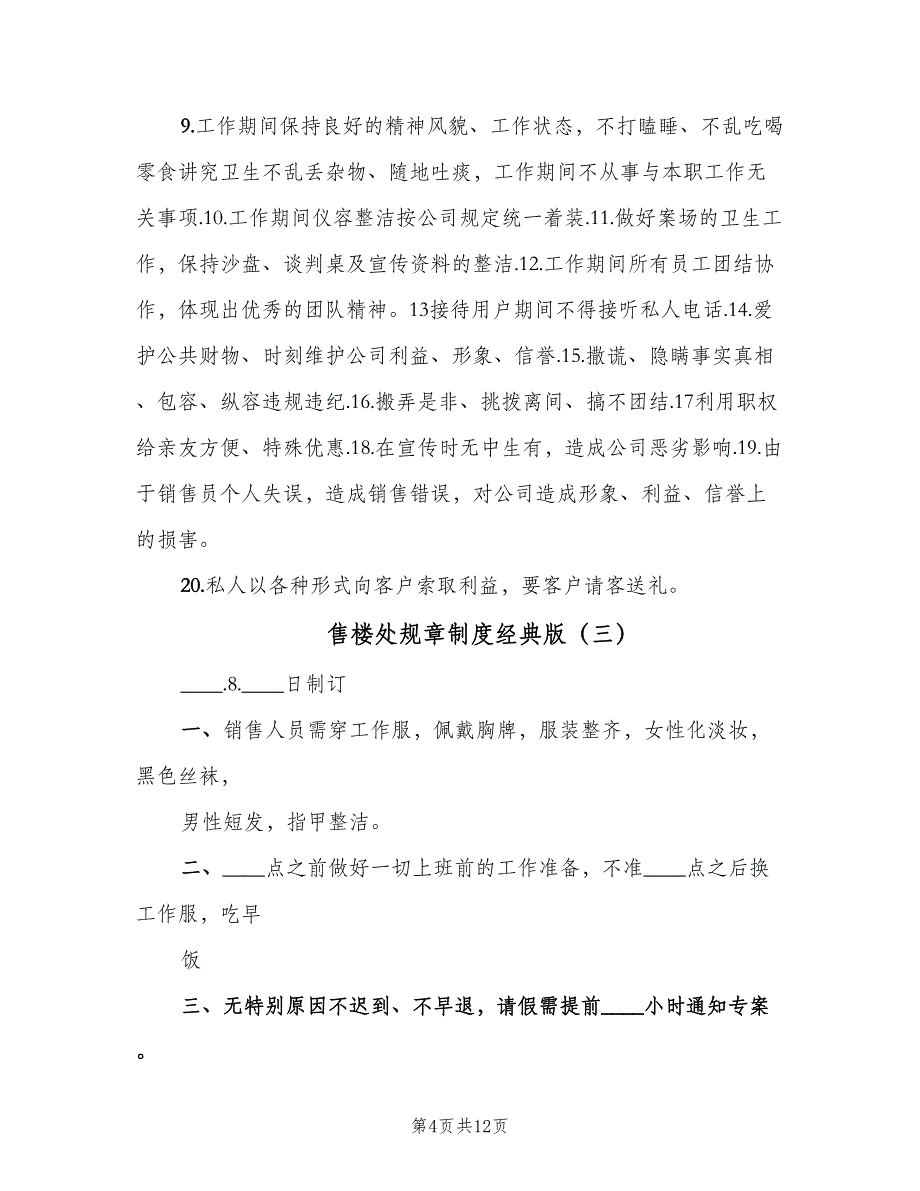 9.工作期间保持良好的精神风貌、工作状态，不打瞌睡、不乱吃喝
零食讲究卫生不乱丢杂物、随地吐痰，工作期间不从事与本职工作无
关事项.10.工作期间仪容整洁按公司规定统一着装.11.做好案场的卫生工
作，保持沙盘、谈判桌及宣传资料的整洁.12.工作期间所有员工团结协
作，体现出优秀的团队精神。13接待用户期间不得接听私人电话.14.爱
护公共财物、时刻维护公司利益、形象、信誉.15.撒谎、隐瞒事实真相
、包容、纵容违规违纪.16.搬弄是非、挑拨离间、搞不团结.17利用职权
给亲友方便、特殊优惠.18.在宣传时无中生有，造成公司恶劣影响.19.由
于销售员个人失误，造成销售错误，对公司造成形象、利益、信誉上
的损害。
20.私人以各种形式向客户索取利益，要客户请客送礼。
售楼处规章制度经典版（三）
____.8.____日制订
一、销售人员需穿工作服，佩戴胸牌，服装整齐，女性化淡妆，
黑色丝袜，
男性短发，指甲整洁。
二、____点之前做好一切上班前的工作准备，不准____点之后换
工作服，吃早
饭
三、无特别原因不迟到、不早退，请假需提前____小时通知专案
。
第4页共12页